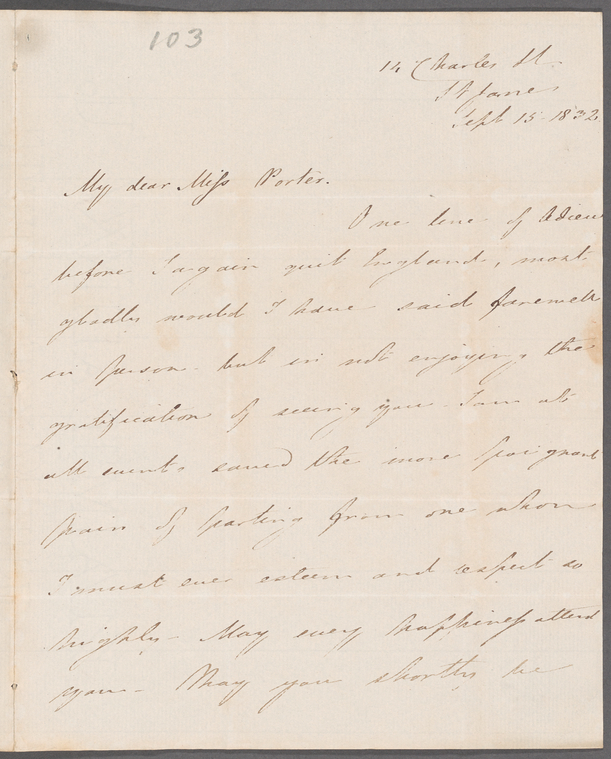 103
14 Charles St.
St James
Sept 15 1832
My dear Miss Porter.
One line of Adieu
before I again quit England, most
gladly would I have said farewell
in person - but in not enjoying the
gratification of seeing you - I am at
all events saved the more poignant
pain of parting from one whom
I must ever esteem and respect so
highly - May every happiness attend
you - May you shortly be